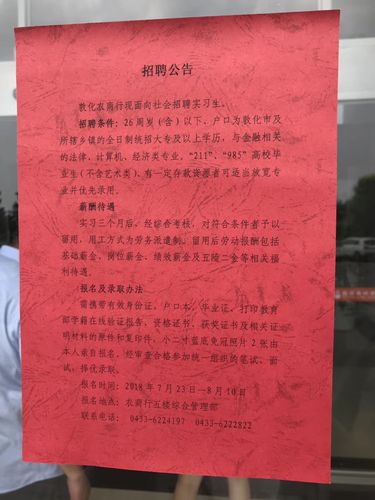 招聘公告
敦化农商行现面向社会招聘实习生。
招聘条件：26周岁（含）以下、户口为敦化市及
所辖乡镇的全日制统招大专及以上学历，与金融相关
的法律、计算机、经济类专业，“211”、“985”高校毕
业生（不含艺术类）、有一定存款资源者可适当放宽专
业并优先录用。
薪酬待遇
实习三个月后，经综合考核，对符合条件者予以
留用，用工方式为劳务派遣制。留用后劳动报酬包括
基础薪金、岗位薪金、绩效薪金及五险二金等相关福
利待遇。
报名及录取办法
需携带有效身份证、户口本、毕业证、打印教育
部学籍在线验证报告、资格证书、获奖证书及相关证
明材料的原件和复印件、小二寸蓝底免冠照片2张由
本人亲自报名，经审查合格参加统一组织的笔试、面
试，择优录取。
报名时间：2018年7月23日—8月10日
报名地点：农商行五楼综合管理部
联系电话：0433-6224197 0433-6222822